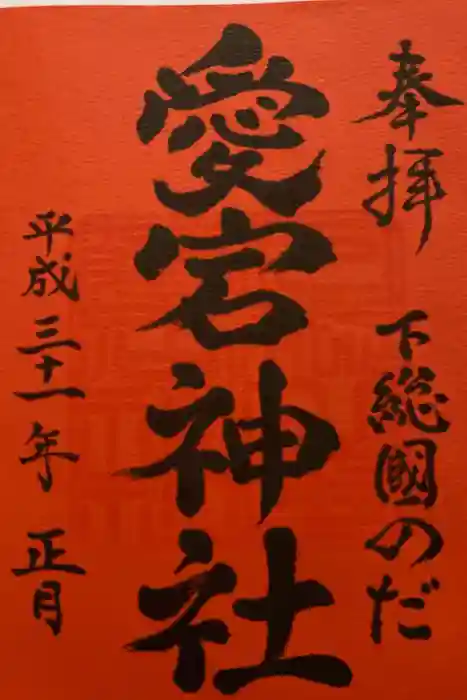 奉拝 下総國のだ
愛宕神社
平成三十一年 正月